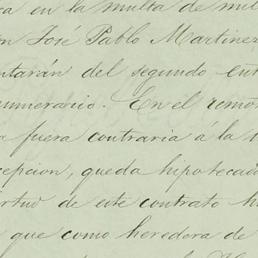 en la multa de mil
José Pablo Martinez
ntarán del segundo
numerario. En el remo
fuera contraria á la
cepcion, queda hipotecado
irtud de este contrato h
que como heredera de